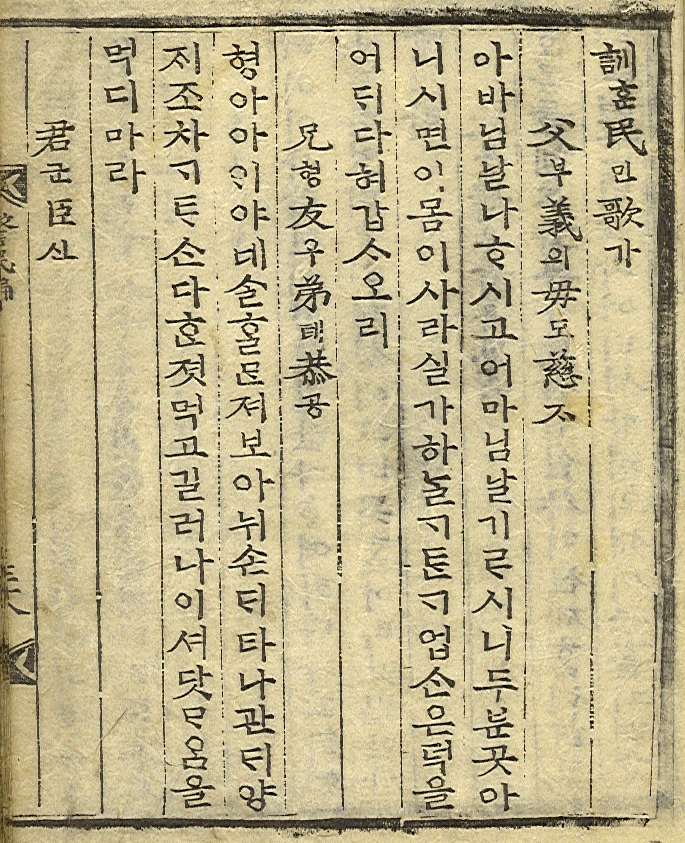 訓훈民민歌가
父부義의毋모慈ᄌᆞ
아바님날나ᄒᆞ시고어마님날기ᄅᆞ시니두분곳아
니시면이몸이사라실가하ᄂᆞᆯᄀᆞᄐᆞᆫᄀᆞ업ᄉᆞᆫ은덕을
어ᄃᆡ다혀갑ᄉᆞ오리
兄형友우弟뎨恭공
형아아ᄋᆡ야네ᄉᆞᆯᄒᆞᆯᄆᆞᆫ져보아뉘손ᄃᆡ타나관ᄃᆡ양
ᄌᆡ조차ᄀᆞᄐᆞᄉᆞᆫ다ᄒᆞᆫ졋먹고길러나이셔닷ᄆᆞᄋᆞᆷ을
먹디마라
君군臣신